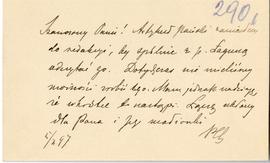 290
Szanowny Panie! Artykuł Pański zaniosłem
do redakcji, by wspólnie z p. Laguną
odczytać go. Dotychczas nie mieliśmy
możności zrobić tego. Mam jednak nadzieję,
że wkrótce to nastąpi. Łączę ukłony
dla Pana i Jego małżonki